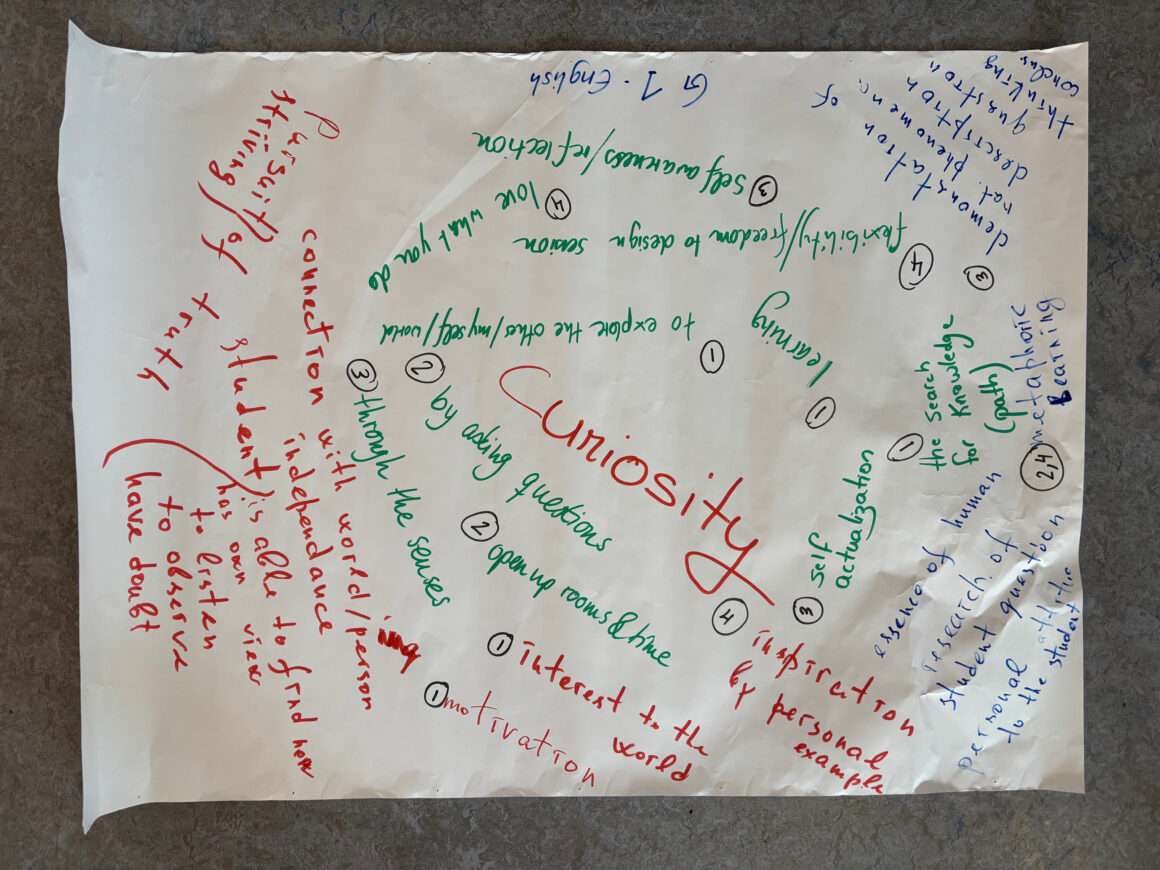 Curiosity
G1 - English
③ Self awareness/reflection
④ love what you do
④ flexibility/freedom to design session
① to explore the other/myself/world
① learning
② by asking questions
③ through the senses
② open up rooms & time
① the search
for knowledge
(path)
③ self
actualization
③ demonstration of
nat. phenomena
description
question
thinking
2,4 metaphoric
learning
essence of human
research of
student question
personal
to the student
④ inspiration
by personal
example
① interest to the
world
① motivation
Pursuit/
striving/of
truth
(have doubt
to observe
to listen
connection with world/person
independance
student/is able to find
has own view